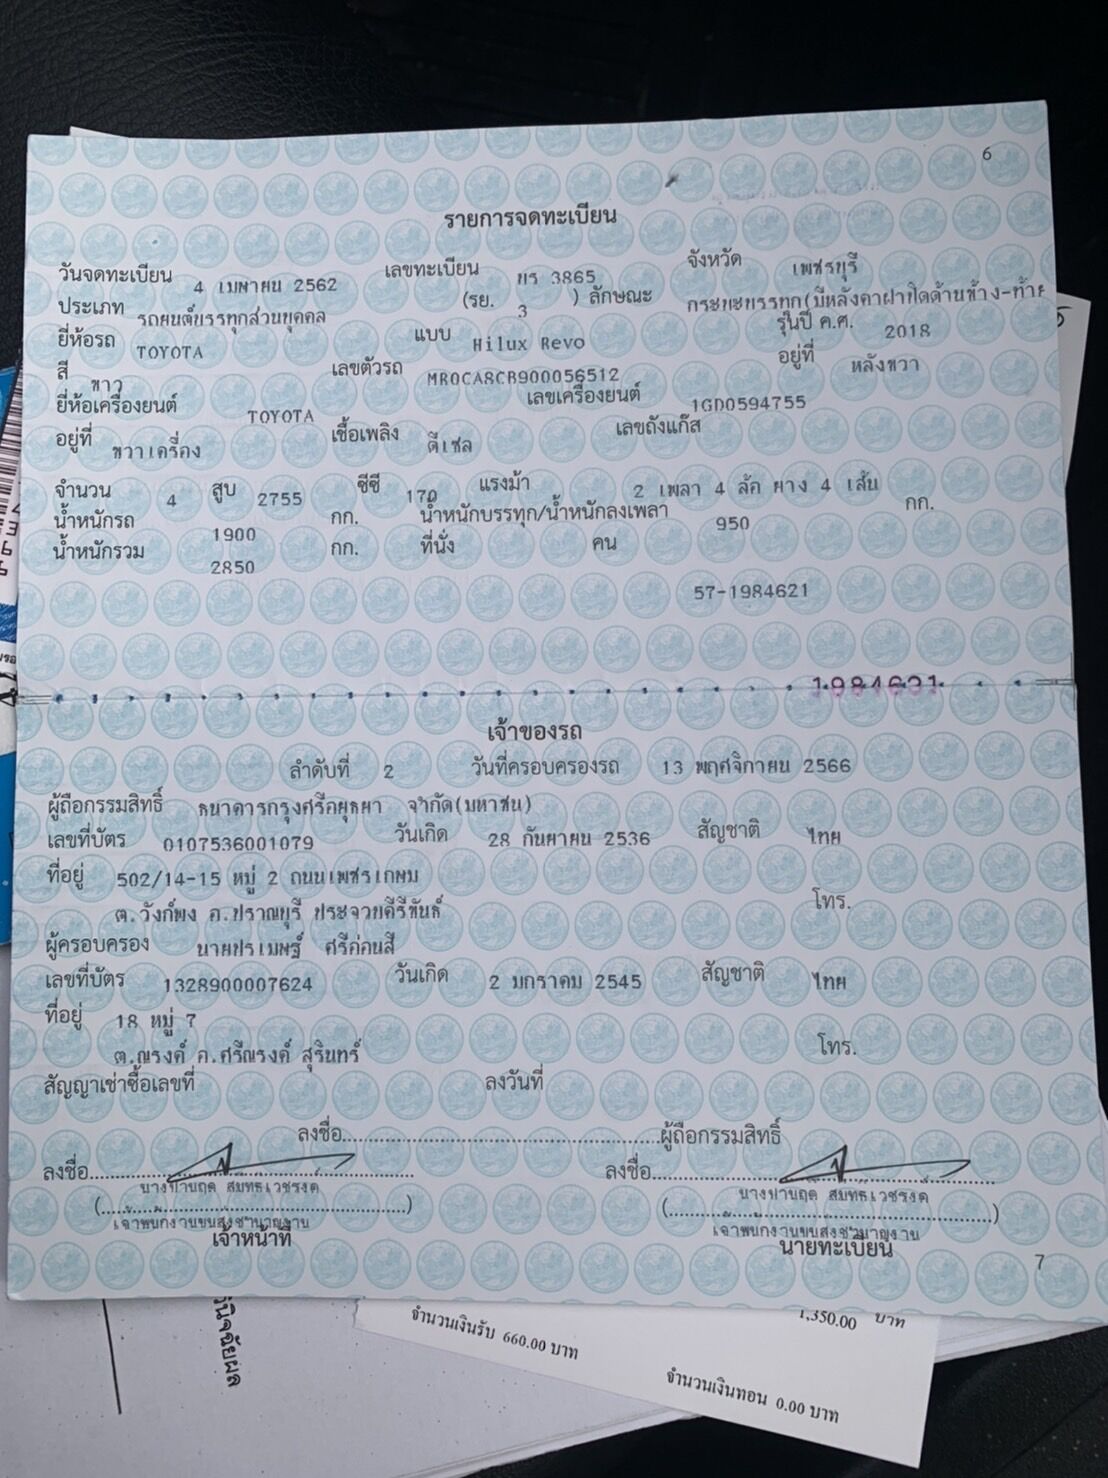 6
รายการจดทะเบียน
วันจดทะเบียน 4 เมษายน 2562 เลขทะเบียน บร 3865 จังหวัด เพชรบุรี
ประเภท รถยนต์บรรทุกส่วนบุคคล (รย. 3 ) ลักษณะ กระบะบรรทุก(มีหลังคาฝาปิดด้านข้าง-ท้าย
ยี่ห้อรถ TOYOTA แบบ Hilux Revo รุ่นปี ค.ศ. 2018
สี ขาว เลขตัวรถ MR0CA8CB900056512 อยู่ที่ หลังขวา
ยี่ห้อเครื่องยนต์ TOYOTA เลขเครื่องยนต์ 1GD0594755
อยู่ที่ ขวาเครื่อง เชื้อเพลิง ดีเซล เลขถังแก๊ส
จำนวน 4 สูบ 2755 ซีซี 170 แรงม้า 2 เพลา 4 ล้อ ยาง 4 เส้น
น้ำหนักรถ 1900 กก. น้ำหนักบรรทุก/น้ำหนักลงเพลา 950 กก.
น้ำหนักรวม 2850 กก. ที่นั่ง คน
57-1984621
1984621
เจ้าของรถ
ลำดับที่ 2 วันที่ครอบครองรถ 13 พฤศจิกายน 2566
ผู้ถือกรรมสิทธิ์ ธนาคารกรุงศรีอยุธยา จำกัด(มหาชน)
เลขที่บัตร 0107536001079 วันเกิด 28 กันยายน 2536 สัญชาติ ไทย
ที่อยู่ 502/14-15 หมู่ 2 ถนนเพชรเกษม
ต.วังก์พง อ.ปราณบุรี ประจวบคีรีขันธ์ โทร.
ผู้ครอบครอง นายปรเมษฐ์ ศรีอ่อนสี
เลขที่บัตร 1328900007624 วันเกิด 2 มกราคม 2545 สัญชาติ ไทย
ที่อยู่ 18 หมู่ 7
ต.ณรงค์ อ.ศรีณรงค์ สุรินทร์ โทร.
สัญญาเช่าซื้อเลขที่ ลงวันที่
ลงชื่อ ผู้ถือกรรมสิทธิ์
ลงชื่อ ลงชื่อ
เจ้าพนักงานขนส่งชำนาญงาน เจ้าพนักงานขนส่งชำนาญงาน
เจ้าหน้าที่ นายทะเบียน
7
1,350.00 บาท
จำนวนเงินรับ 660.00 บาท
จำนวนเงินทอน 0.00 บาท